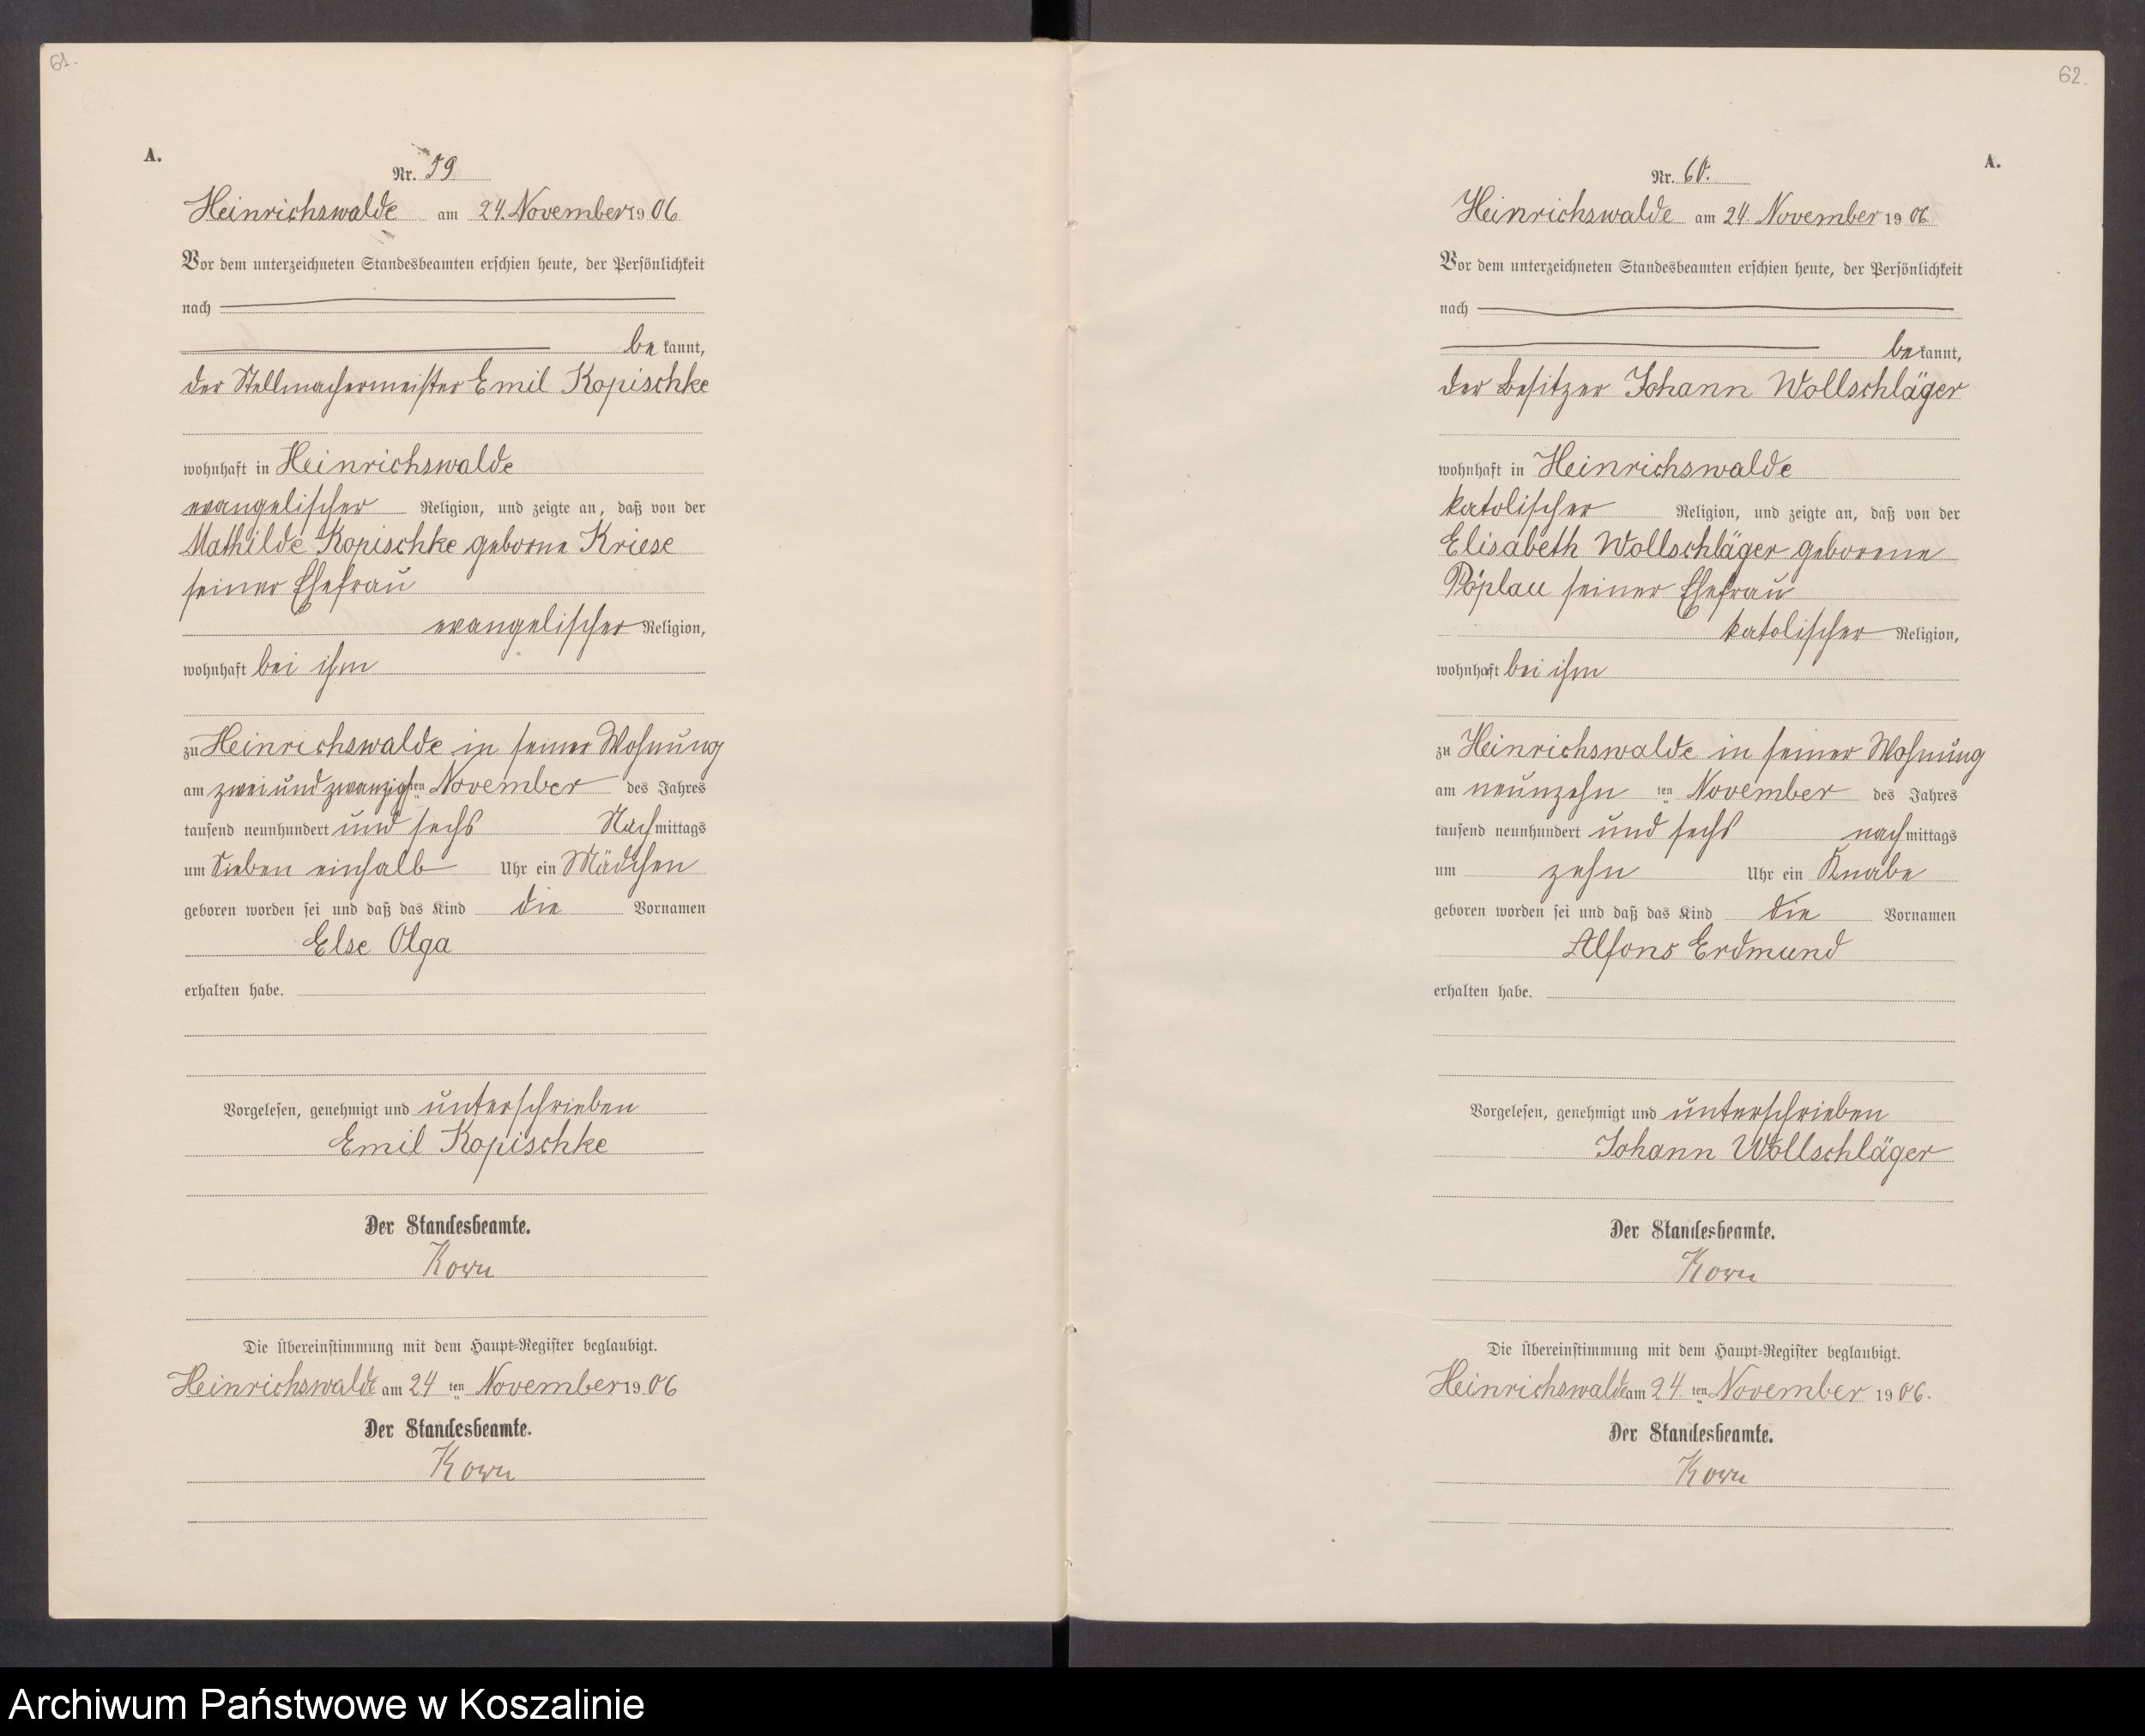 61.
A.
Nr. 59
Heinrichswalde am 24. November 1906
Vor dem unterzeichneten Standesbeamten erschien heute, der Persönlichkeit
nach
bekannt,
der Stellmachermeister Emil Kopischke
wohnhaft in Heinrichswalde
evangelischer Religion, und zeigte an, daß von der
Mathilde Kopischke geborne Kriese
seiner Ehefrau
evangelischer Religion,
wohnhaft bei ihm
zu Heinrichswalde in seiner Wohnung
am zweiundzwanzigsten November des Jahres
tausend neunhundert und sechs Nachmittags
um Sieben einhalb Uhr ein Mädchen
geboren worden sei und daß das Kind die Vornamen
Else Olga
erhalten habe.
Vorgelesen, genehmigt und unterschrieben
Emil Kopischke
Der Standesbeamte.
Die Übereinstimmung mit dem Haupt-Register beglaubigt.
Heinrichswalde am 24 ten November 1906
Der Standesbeamte.
62.
A.
Nr. 60.
Heinrichswalde am 24. November 1906
Vor dem unterzeichneten Standesbeamten erschien heute, der Persönlichkeit
nach
bekannt,
der Besitzer Johann Wollschläger
wohnhaft in Heinrichswalde
katolischer Religion, und zeigte an, daß von der
Elisabeth Wollschläger geborene
Pöplau seiner Ehefrau
katolischer Religion,
wohnhaft bei ihm
zu Heinrichswalde in seiner Wohnung
am neunzehn ten November des Jahres
tausend neunhundert und sechs nachmittags
um zehn Uhr ein Knabe
geboren worden sei und daß das Kind die Vornamen
Alfons Erdmund
erhalten habe.
Vorgelesen, genehmigt und unterschrieben
Johann Wollschläger
Der Standesbeamte.
Die Übereinstimmung mit dem Haupt-Register beglaubigt.
Heinrichswalde am 24. ten November 1906.
Der Standesbeamte.
Archiwum Państwowe w Koszalinie